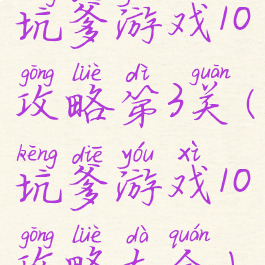 坑爹游戏10
gōng lüè dì guān
攻略第3关(
kēng diē yóu xì
坑爹游戏10
gōng lüè dà quán
攻略大全)